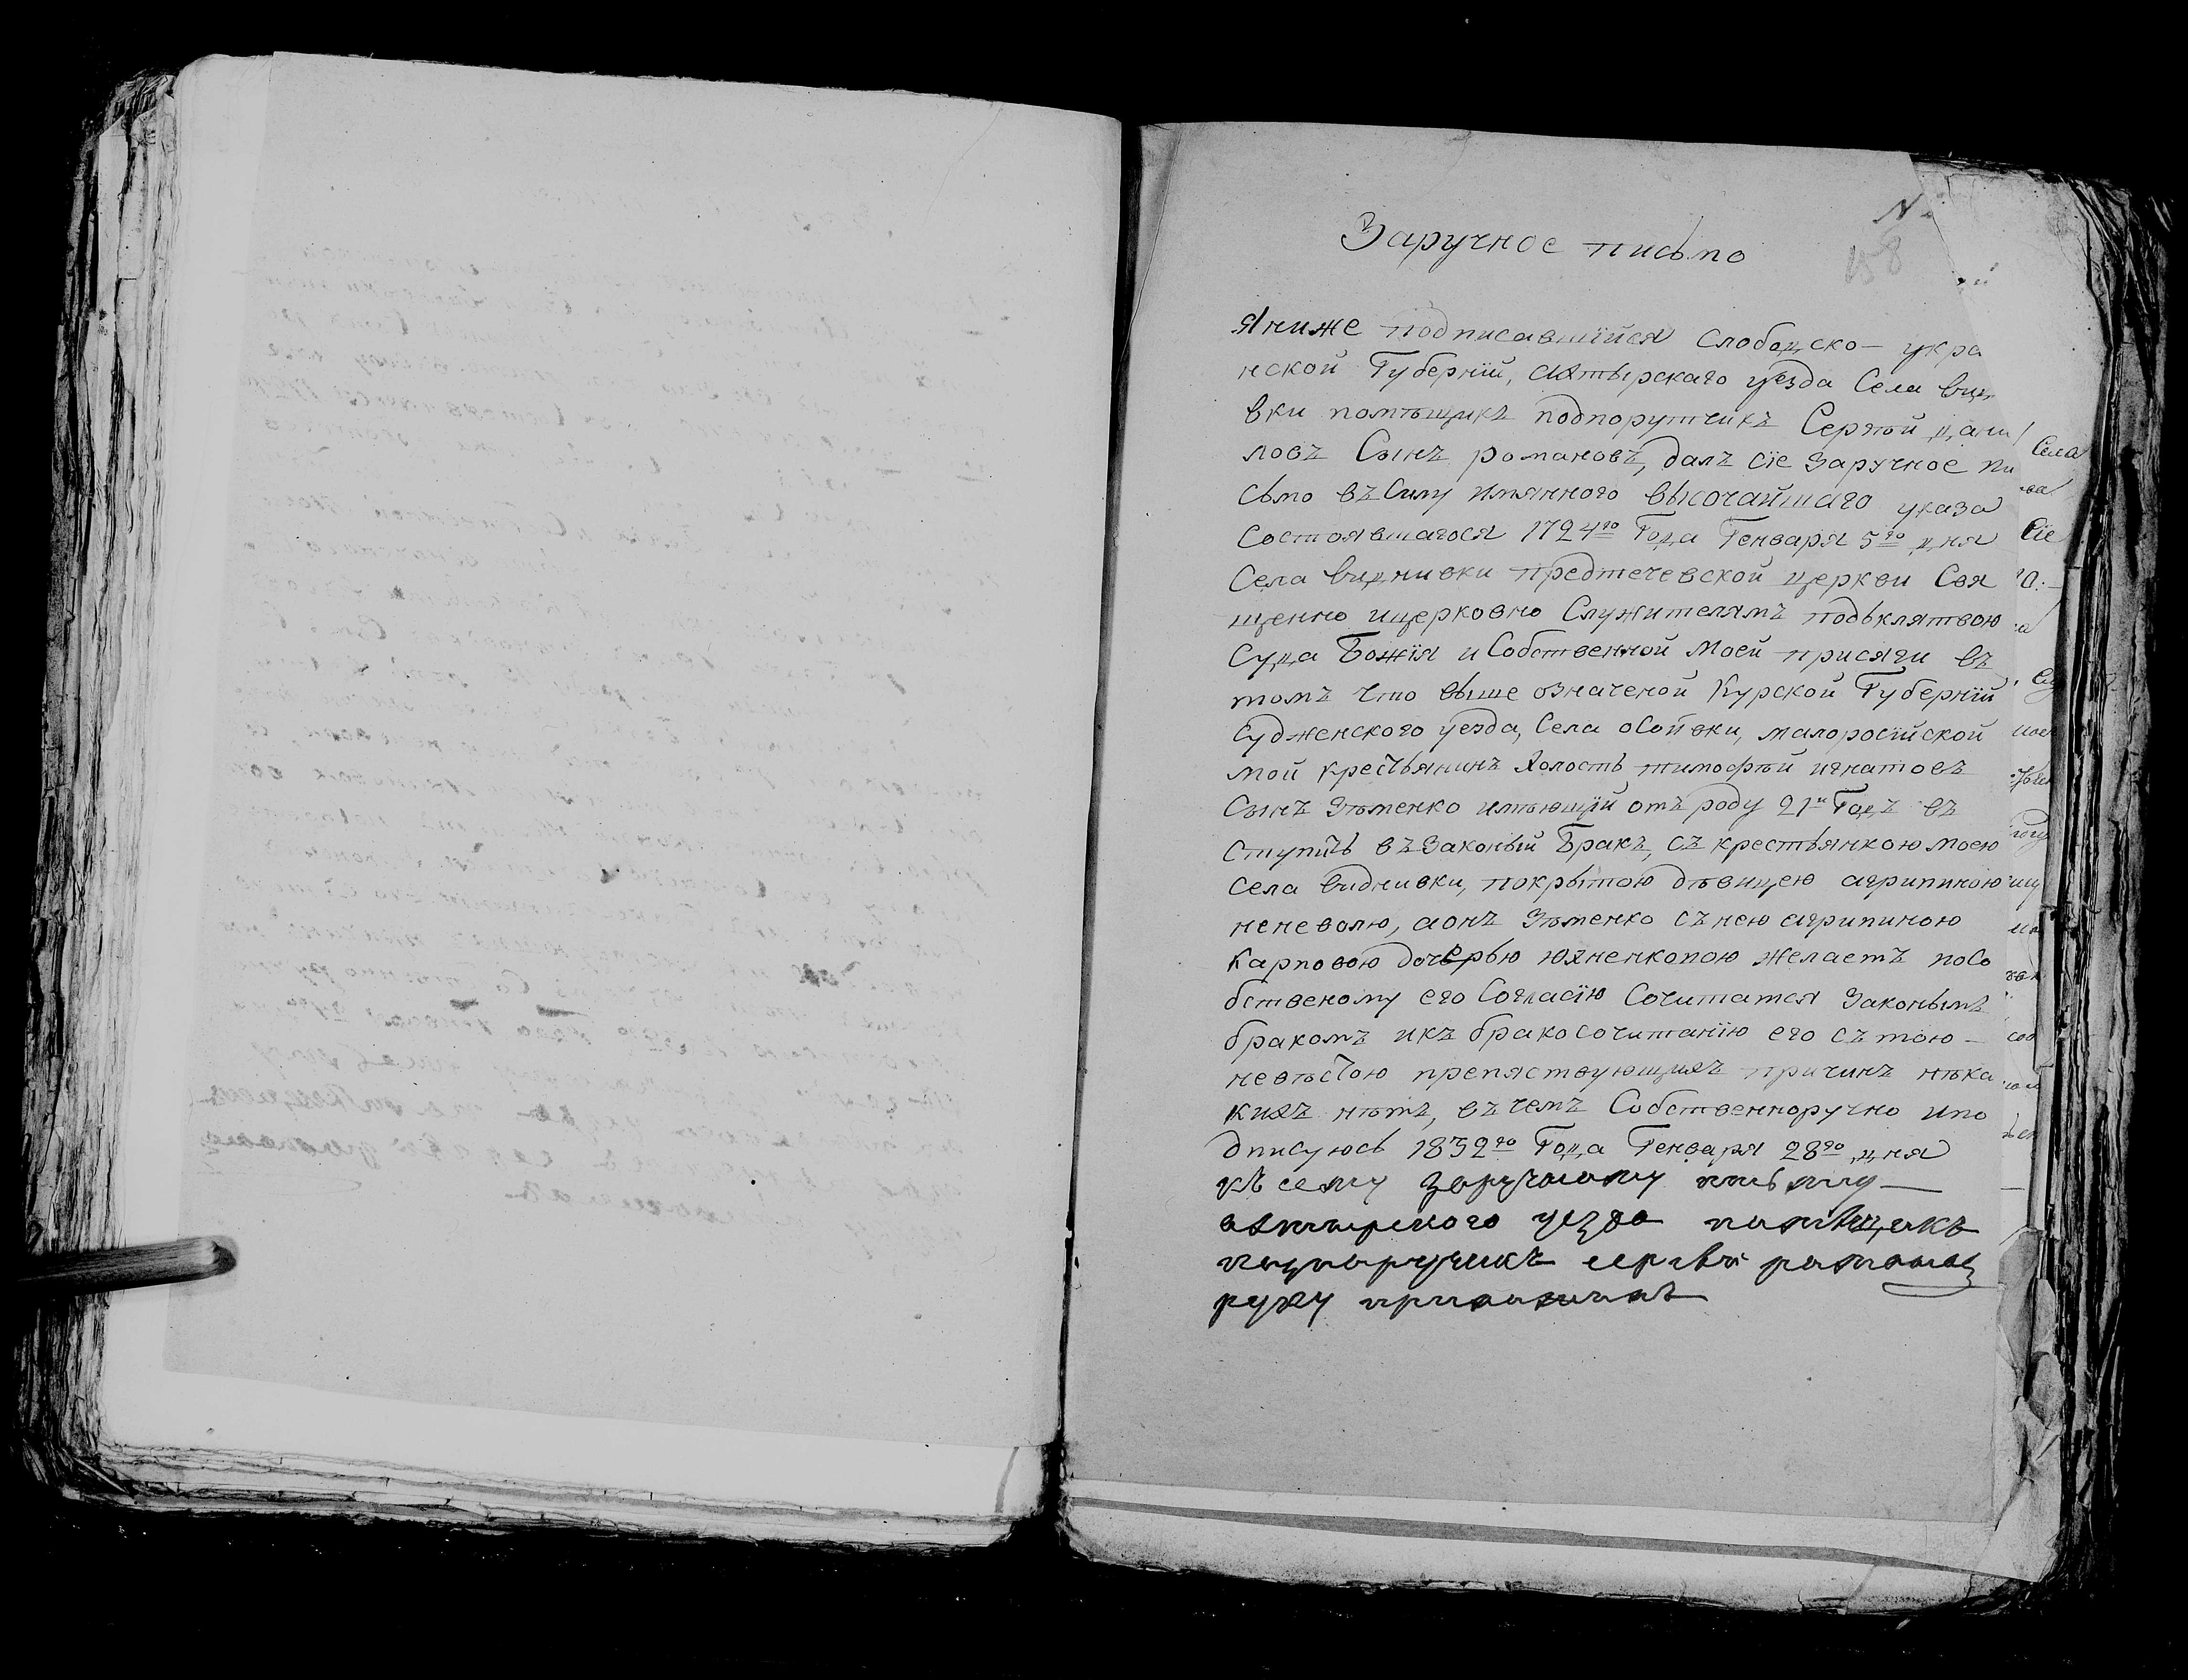 N.
158
Заручное письмо
Я ниже подписавшїйся слободско- укра
нской Губернїй, ахтырскаго уезда Села вид
вки помѣщикъ подпорутчикъ Сергѣй дани
ловъ Сынъ романовъ, далъ сїе Заручное пи
сьмо въ Силу имяннего высочайшаго указа
Состоявшагося 1724го Года Генваря 5го дня
Села виднивки предтечевской церкви Свя
щенно ицерковно Служителямъ подьклятвою
Суда Божїя и Собственной моей присяги въ
томъ что выше означеной Курской Губернїй
Судженского уезда, Села осоївки, малоросїйской
мой крестьянинъ холость тимофѣй игнатовъ
Сынъ Зѣменко имѣющїй отъ роду 21й Годъ въ
ступить въ Законый Бракъ, съ крестьянкою моею
Села виднивки, покрытою дѣвицею агрипиною
неневолю, аонъ Зѣменко съ нею агрипиною
Карповою дочерью юхненковою желаетъ поСо
бственому его Согласїю Сочитатся Законымъ
бракомъ икъ бракосочитанїю его съ тою-
невѣстою препяствующихъ причинъ нѣка
кихъ нѣтъ, въ чемъ Собственноручно ипо
дписуюсь 1832го Года Генваря 28го дня
къ сему заручному письму
ахтырского уезда помѣщикъ
подпоручикъ сергѣй романовъ
руку приложилъ
Села
Сїе